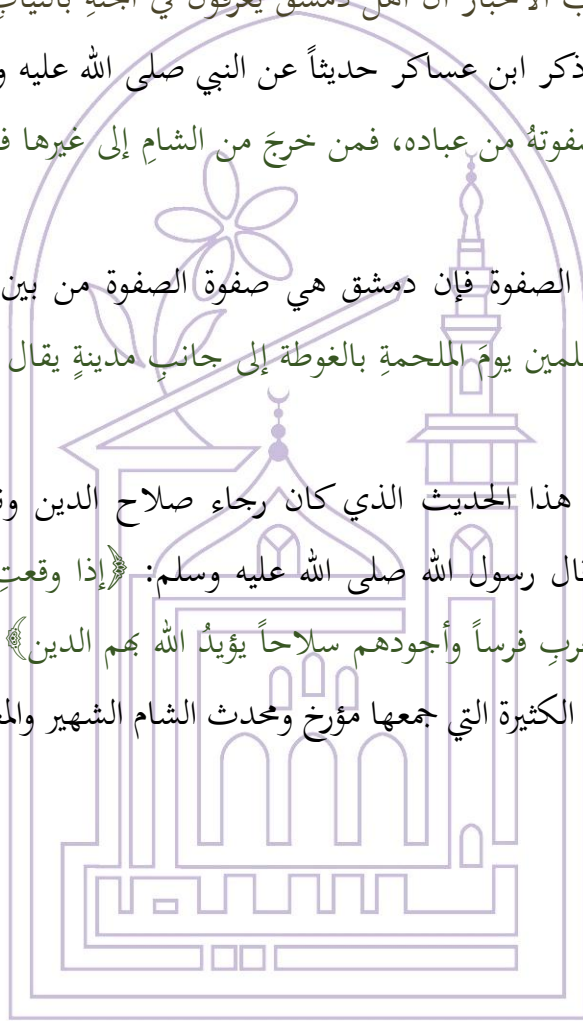 الأخبار أن أهل دمشق يعرفون في الجنة بالثياب
ذكر ابن عساكر حديثاً عن النبي صلى الله عليه
صفوتهُ من عباده، فمن خرجَ من الشامِ إلى غيرها
الصفوة فإن دمشق هي صفوة الصفوة من بين
يومَ الملحمةِ بالغوطة إلى جانبِ مدينةٍ يقال
هذا الحديث الذي كان رجاء صلاح الدين
قال رسول الله صلى الله عليه وسلم: ﴿إذا وقعتِ
فرساً وأجودهم سلاحاً يؤيدُ الله بهم الدين﴾
الكثيرة التي جمعها مؤرخ ومحدث الشام الشهير